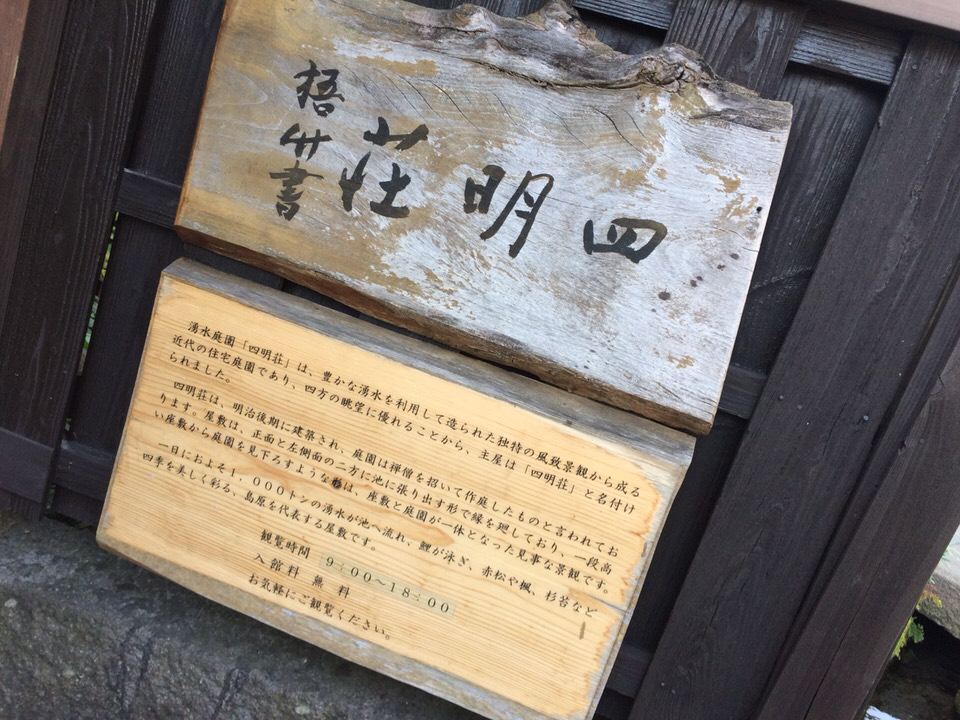 四明荘
梧竹書
湧水庭園「四明荘」は、豊かな湧水を利用して造られた独特の風致景観から成る
近代の住宅庭園であり、四方の眺望に優れることから、主屋は「四明荘」と名付け
られました。
四明荘は、明治後期に建築され、庭園は禅僧を招いて作庭したものと言われてお
ります。屋敷は、正面と左側面の二方に池に張り出す形で縁を廻しており、一段高
い座敷から庭園を見下ろすようなは、座敷と庭園が一体となった見事な景観です。
一日におよそ1,000トンの湧水が池へ流れ、鯉が泳ぎ、赤松や楓、杉苔など
四季を美しく彩る、島原を代表する屋敷です。
観覧時間 9:00~18:00
入館料 無料
お気軽にご観覧ください。